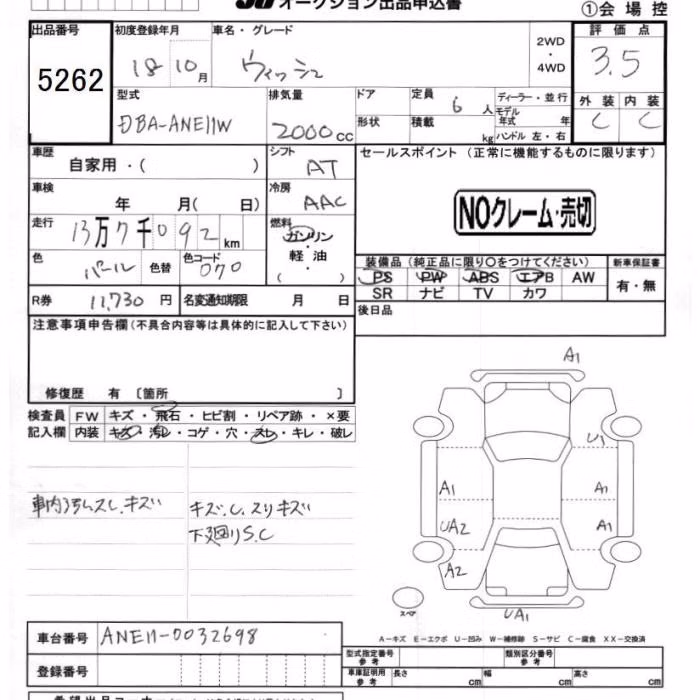 オークション出品申込書
①会場控
出品番号
5262
初度登録年月
18 10月
車名・グレード
ウィッシュ
2WD・4WD
評価点
3.5
型式
DBA-ANE11W
排気量
2000cc
ドア
定員 6人
ディーラー・並行
外装 内装
C C
形状
積載 kg
モデル年式 年
ハンドル 左・右
車歴
自家用・( )
シフト
AT
セールスポイント (正常に機能するものに限ります)
車検
年 月( 日)
冷房
AAC
NOクレーム・売切
走行
13万7千092km
燃料
ガソリン
軽・油
( )
色
パール
色替
色コード
070
装備品 (純正品に限り○をつけてください)
新車保証書
PS PW ABS エアB AW
有・無
SR ナビ TV カワ
R券 11,730円
名変通知期限 月 日
後日品
注意事項申告欄(不具合内容等は具体的に記入して下さい)
修復歴 有 〔箇所 〕
検査員記入欄
FW キズ・飛石・ヒビ割・リペア跡・×要
内装 キズ・汚レ・コゲ・穴・スレ・キレ・破レ
キズ.C.スリキズ
下廻りS.C
A1
U1
A1
A1
UA2
A1
A2
スペア
UA1
A−キズ E−エクボ U−凹み W−補修跡 S−サビ C−腐食 XX−交換済
車台番号 ANE11-0032698
登録番号
型式指定番号 参考
類別区分番号 参考
車庫証明用 参考
長さ cm
幅 cm
高さ cm